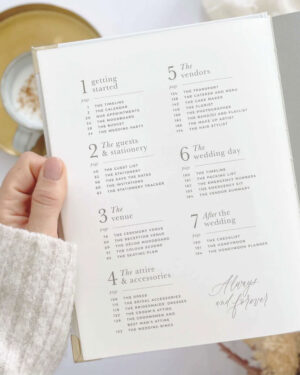 1 getting
started
page
THE TIMELINE
THE CALENDAR
OUR APPOINTMENTS
THE MOODBOARD
THE BUDGET
THE WEDDING PARTY
2 The guests
& stationery
page
THE GUEST LIST
THE STATIONERY
THE SAVE THE DATES
THE INVITATIONS
THE STATIONERY TRACKER
3 The
venue
page
THE CEREMONY VENUE
THE RECEPTION VENUE
THE DECOR MOODBOARD
THE COLOUR SCHEME
THE SEATING PLAN
4 The attire
& accessories
page
THE DRESS
THE BRIDAL ACCESSORIES
THE BRIDESMAIDS' DRESSES
THE GROOM'S ATTIRE
THE GROOMSMEN AND
BEST MAN'S ATTIRE
THE WEDDING RINGS
5 The
vendors
page
THE TRANSPORT
THE CATERER AND MENU
THE CAKE MAKER
THE FLORIST
THE PHOTOGRAPHER
THE MAKE UP ARTIST
THE HAIR STYLIST
6 The
wedding day
page
THE TIMELINE
THE PACKING LIST
THE EMERGENCY NUMBERS
THE EMERGENCY KIT
THE VENDOR SUMMARY
7 After the
wedding
page
THE CHECKLIST
THE HONEYMOON
THE HONEYMOON PLANNER
Always
and forever